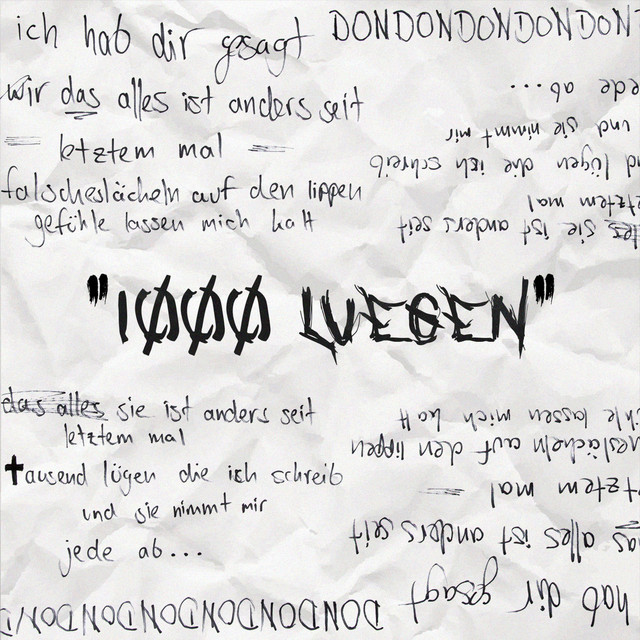 ich hab dir gesagt DONDONDONDONDON
wir das alles ist anders seit
letztem mal
falscheslächeln auf den lippen
gefühle lassen mich kalt
ede ab...
und sie nimmt mir
d lügen die ich schreib
etztem mal
sie ist anders seit
"1ØØØ LUEGEN"
das alles sie ist anders seit
letztem mal
tausend lügen die ich schreib
und sie nimmt mir
jede ab...
hle lassen mich kalt
heslächeln auf den lippen
tztem mal
as alles ist anders seit
hab dir gesagt
DONDONDONDONDONDOND